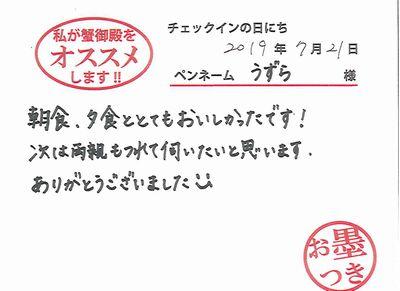 私が蟹御殿を
オススメ
します!!
チェックインの日にち
2019年7月21日
ペンネーム うずら 様
朝食、夕食ととてもおいしかったです!
次は両親もつれて伺いたいと思います.
ありがとうございました
お墨
つき